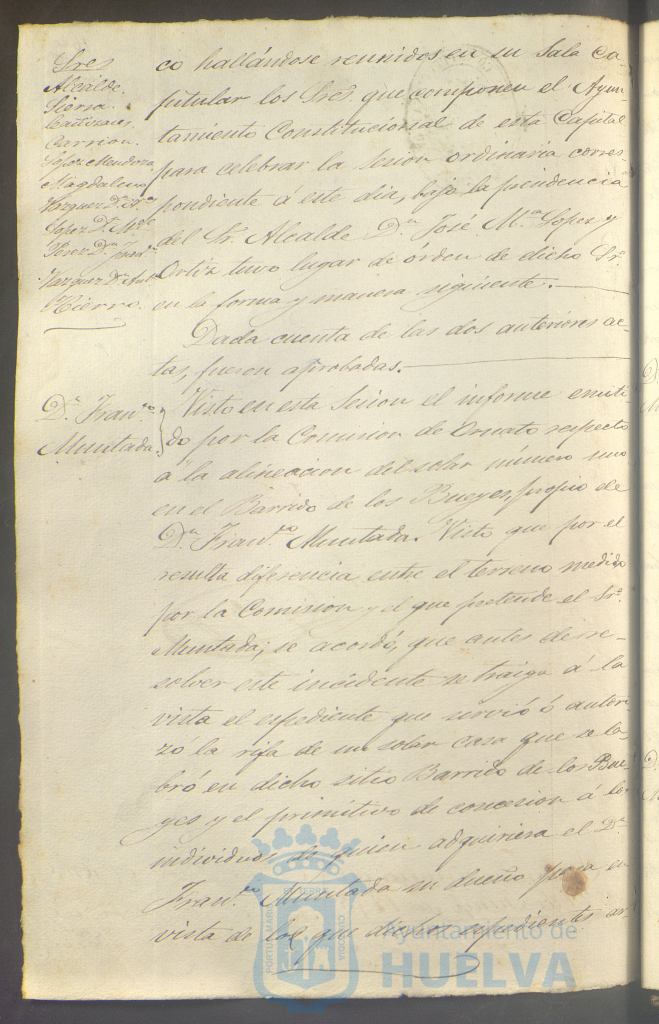 Sres
Alcalde.
Sierra.
Cañizares
Carrion.
Lopez Mendoza
Magdaleno
Vazquez Dn
Lopez Dn
Perez Dn Juan
Vazquez Dn Ant.
Hierro.
co hallándose reunidos en su Sala Ca-
pitular los Sres. que componen el Ayun-
tamiento Constitucional de esta Capital
para celebrar la sesion ordinaria corres-
pondiente á este dia, bajo la presidencia
del Sr. Alcalde Dn. José Ma. Lopez y
Ortiz tuvo lugar de órden de dicho Sr.
en la forma y manera siguiente.
Dada cuenta de las dos anteriores ac-
tas, fueron aprobadas.
Dn. Franco.
Muntada.
Visto en esta sesion el informe emiti-
do por la Comision de Ornato respecto
á la alineacion del solar número uno
en el Barrido de los Bueyes, propio de
Dn. Franco. Muntada. Visto que por el
resulta diferencia entre el terreno medido
por la Comision y el que pretende el Sr.
Muntada; se acordó, que antes de re-
solver este incidente se traiga á la
vista el espediente que sirvió ó autori-
zó la rifa de un solar casa que se la-
bró en dicho sitio Barrido de los Bue-
yes y el primitivo de concesion á los
individuos de quien adquiriera el Dn.
Franco. Muntada su dueño para en
vista de lo que dichos espedientes ar
Ayuntamiento de
HUELVA